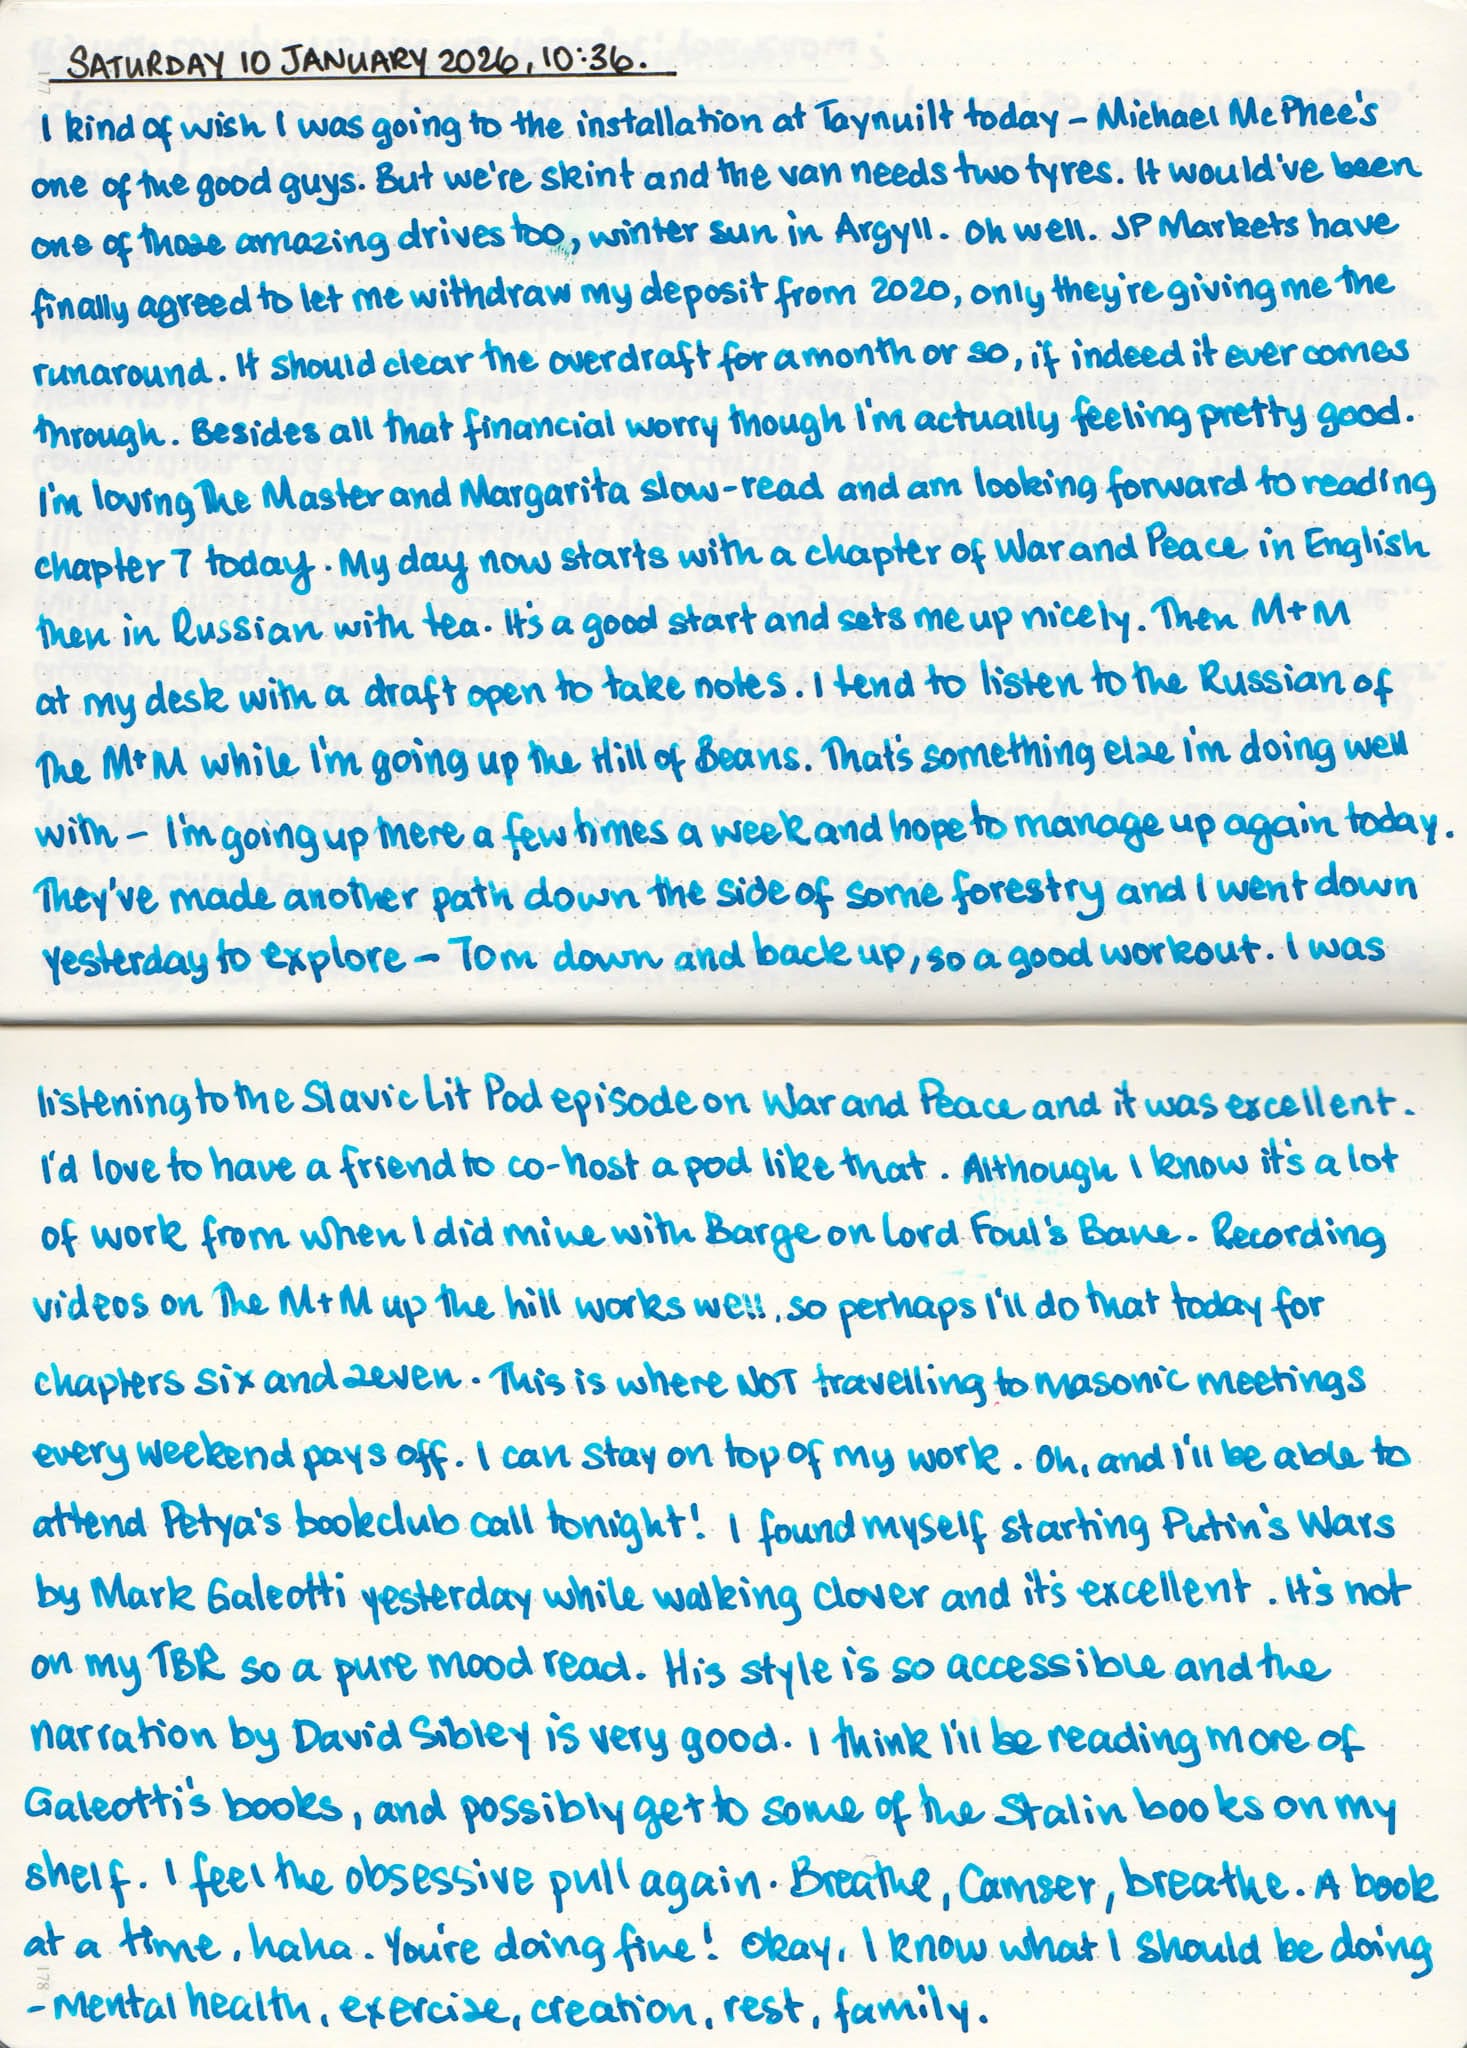 SATURDAY 10 JANUARY 2026, 10:36.
177
I kind of wish I was going to the installation at Taynuilt today – Michael McPhee's
one of the good guys. But we're skint and the van needs two tyres. It would've been
one of those amazing drives too, winter sun in Argyll. Oh well. JP Markets have
finally agreed to let me withdraw my deposit from 2020, only they're giving me the
runaround. It should clear the overdraft for a month or so, if indeed it ever comes
through. Besides all that financial worry though I'm actually feeling pretty good.
I'm loving The Master and Margarita slow-read and am looking forward to reading
chapter 7 today. My day now starts with a chapter of War and Peace in English
then in Russian with tea. It's a good start and sets me up nicely. Then M+M
at my desk with a draft open to take notes. I tend to listen to the Russian of
The M+M while I'm going up the Hill of Beans. That's something else I'm doing well
with – I'm going up there a few times a week and hope to manage up again today.
They've made another path down the side of some forestry and I went down
yesterday to explore – 70m down and back up, so a good workout. I was
listening to the Slavic Lit Pod episode on War and Peace and it was excellent.
I'd love to have a friend to co-host a pod like that. Although I know it's a lot
of work from when I did mine with Barge on Lord Foul's Bane. Recording
videos on The M+M up the hill works well, so perhaps I'll do that today for
chapters six and seven. This is where NOT travelling to masonic meetings
every weekend pays off. I can stay on top of my work. Oh, and I'll be able to
attend Petya's bookclub call tonight! I found myself starting Putin's Wars
by Mark Galeotti yesterday while walking Clover and it's excellent. It's not
on my TBR so a pure mood read. His style is so accessible and the
narration by David Sibley is very good. I think I'll be reading more of
Galeotti's books, and possibly get to some of the Stalin books on my
shelf. I feel the obsessive pull again. Breathe, Camser, breathe. A book
at a time, haha. You're doing fine! Okay, I know what I should be doing
178
– mental health, exercise, creation, rest, family.